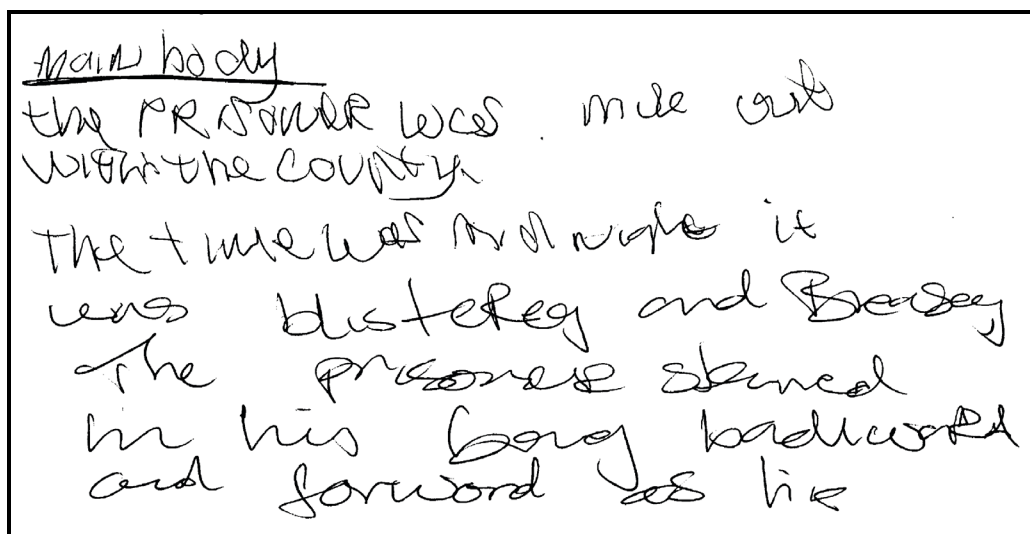 main body
the PRSONER was. mile out
within the county.
The time was midnight it
was blusterey and Breasey
The prisoner stained
in his bang backward
and forward as he